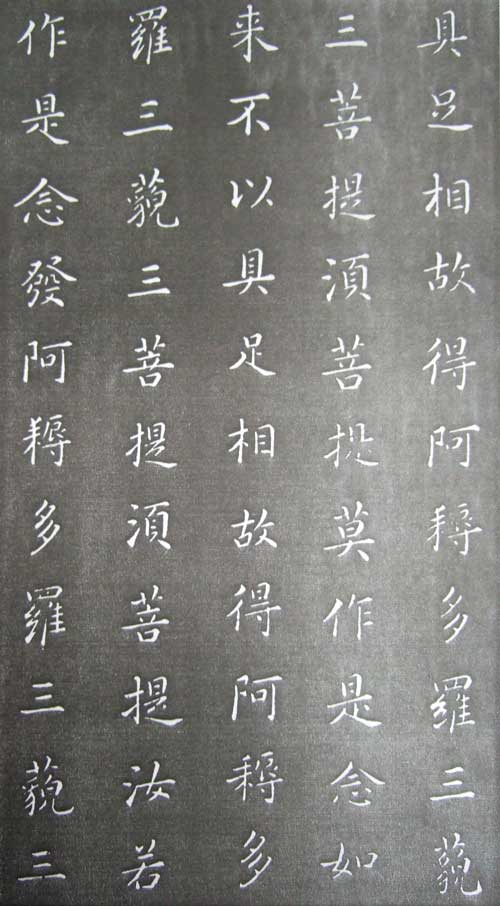 具足相故得阿耨多羅三藐
三菩提湏菩提莫作是念如
来不以具足相故得阿耨多
羅三藐三菩提湏菩提汝若
作是念發阿耨多羅三藐三